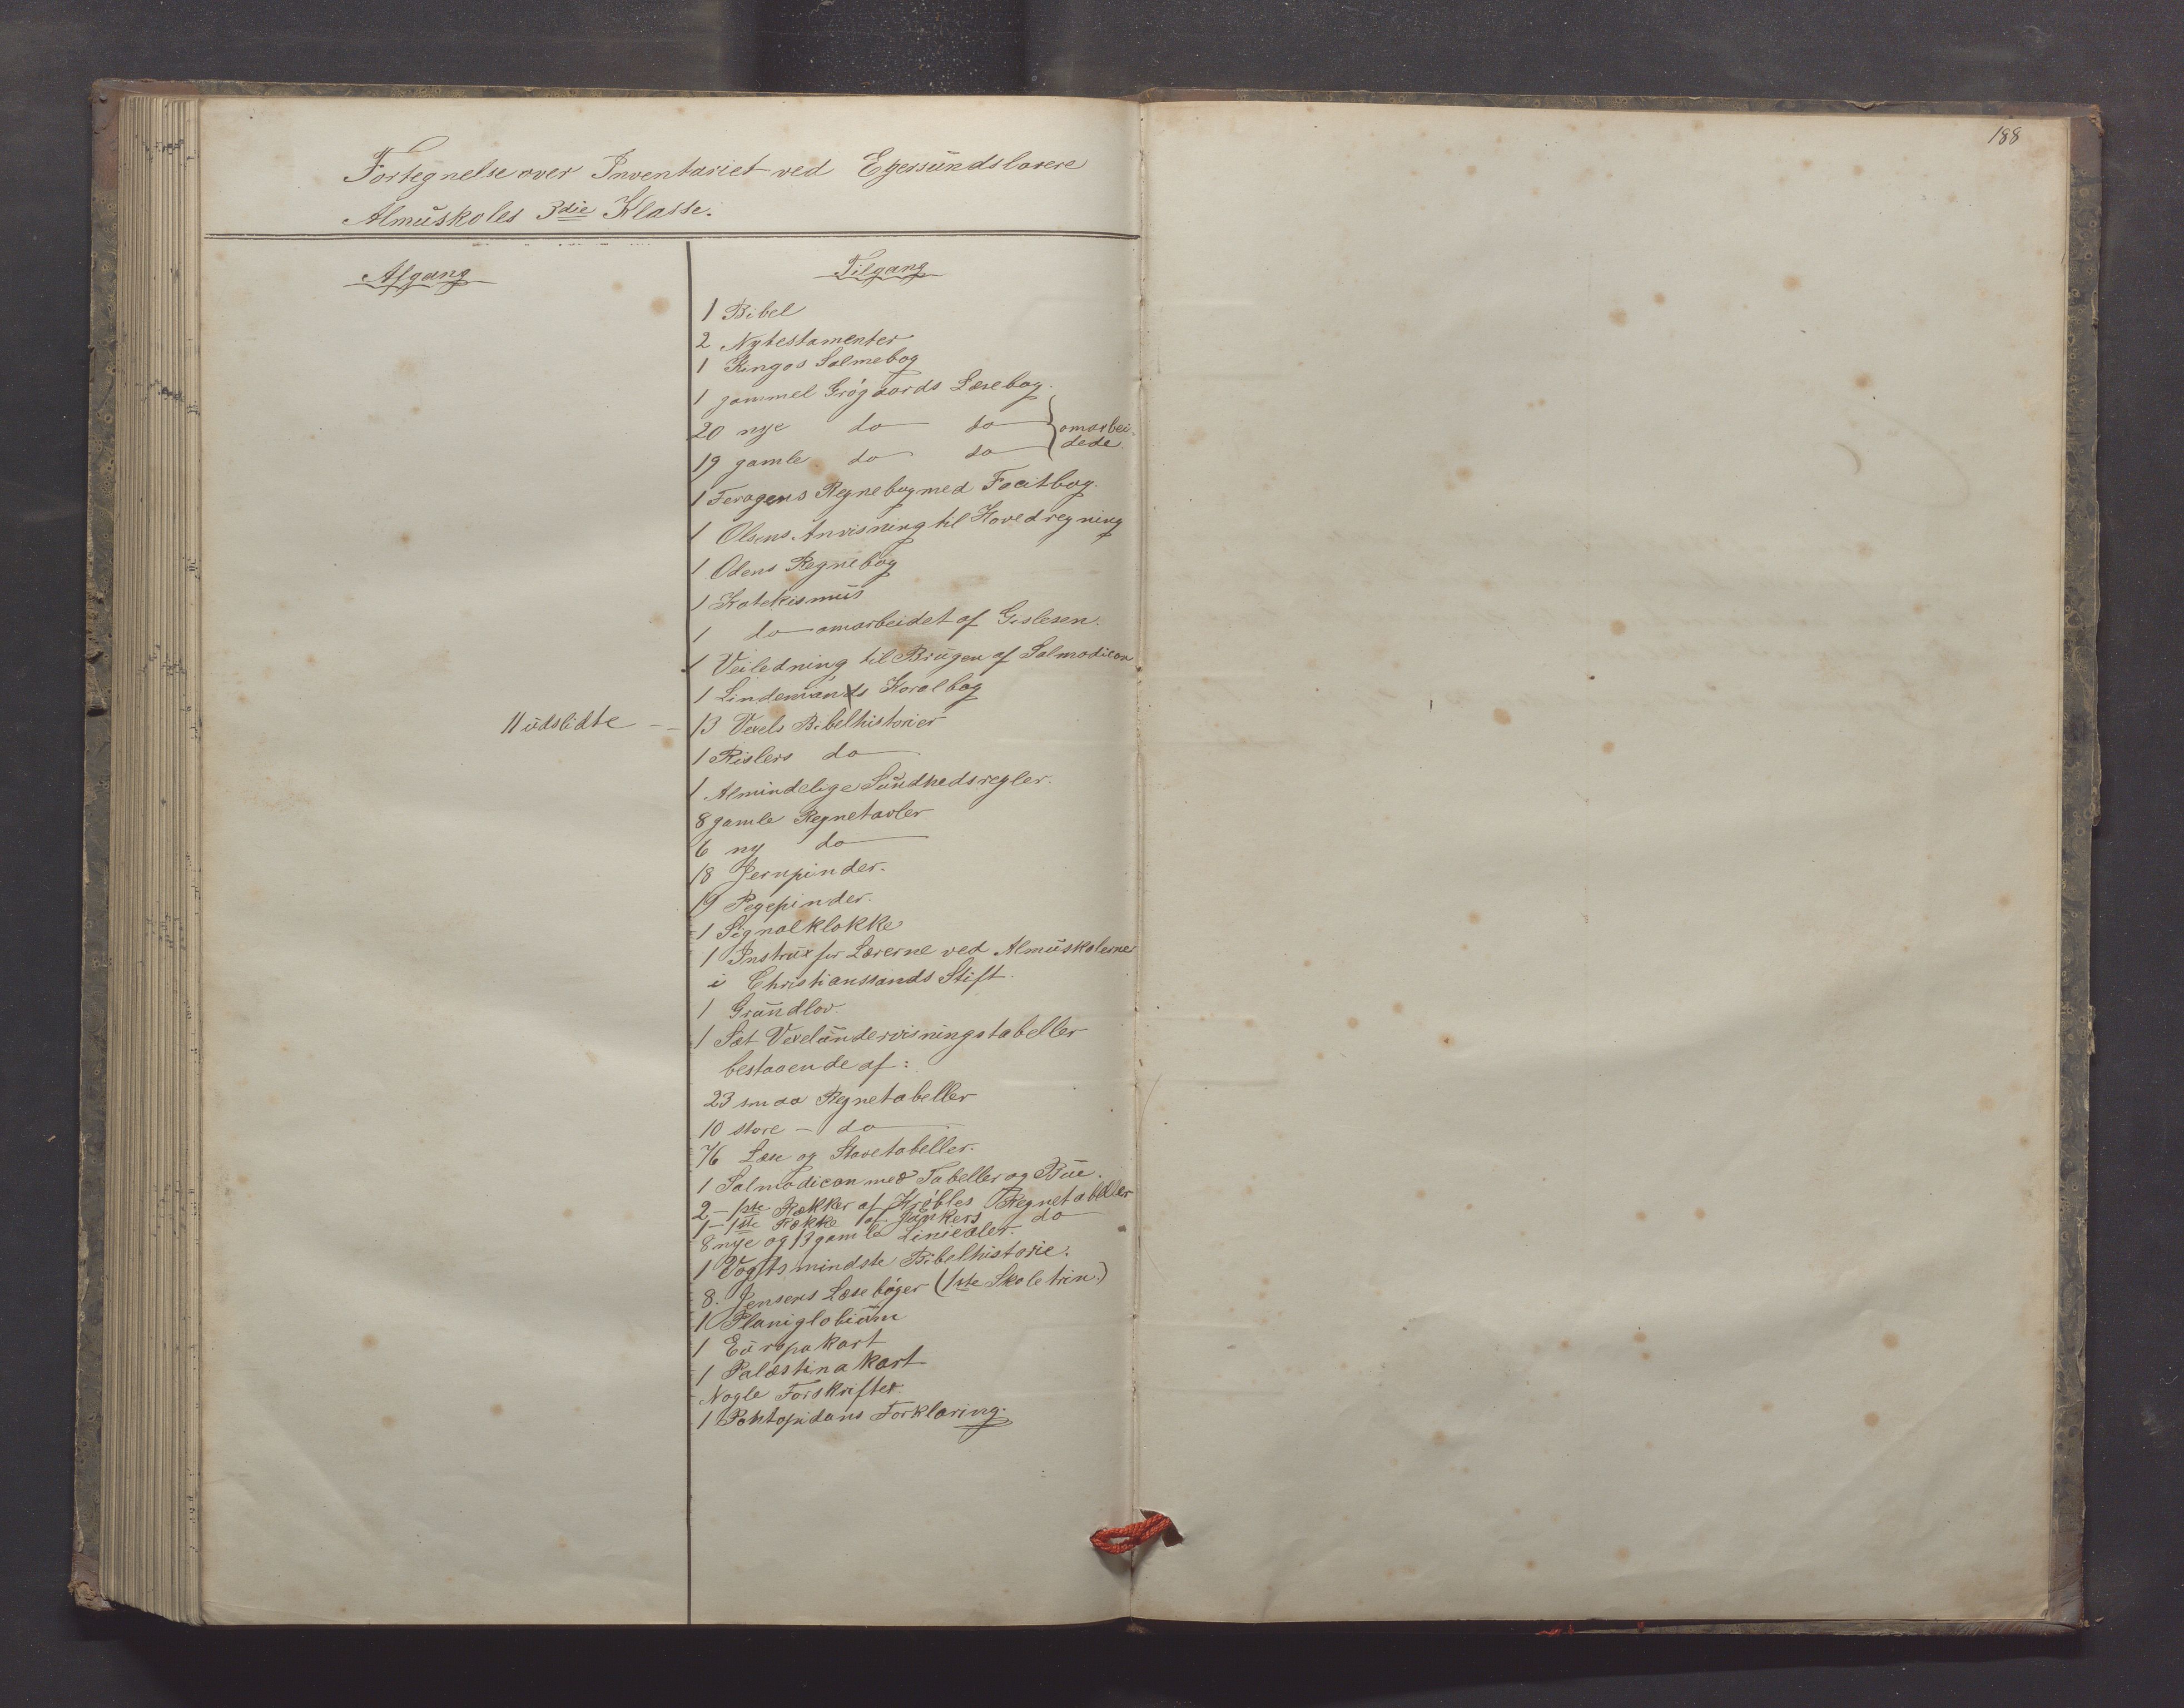 188
Fortegnelse over Inventariet ved Egersunds lavere
Almuskoles 3die Klasse.
Afgang
Tilgang
1 Bibel
2 Nytestamenter
1 Kingos Salmebog
1 gammel Grøgaards Læsebog.
20 nye do do omarbei-
19 gamle do do dede.
1 Feragens Regnebog med Facitbog.
1 Olsens Anvisning til Hovedregning
1 Odens Regnebog
1 Katekismus
1 do omarbeidet af Gislesen.
1 Veiledning til Brugen af Salmodicon
1 Lindemands Koralbog
11 udslidte - 13 Vexels Bibelhistorier
1 Rislers do
1 Almindelige Sundhedsregler.
8 gamle Regnetavler
6 ny do
18 Jernpinder.
19 Pegepinder.
1 Signalklokke
1 Instrux for Lærerne ved Almuskolerne
i Christianssands Stift.
1 Grundlov.
1 Sæt Vexelundervisningstabeller
bestaaende af:
23 smaa Regnetabeller
10 store - do
76 Læse og Stavetabeller.
1 Salmodicon med Tabeller og Bue.
2 - 1ste Rækker af Krøbles Regnetabeller
1 - 1ste Række af Junkers do
8 nye og 13 gamle Linealer.
1 Vogts mindste Bibelhistorie.
8. Jensens Læsebøger (1ste Skoletrin.)
1 Planiglobium
1 Europakart
1 Palæstinakart
Nogle Forskrifter.
1 Pontopidans Forklaring.